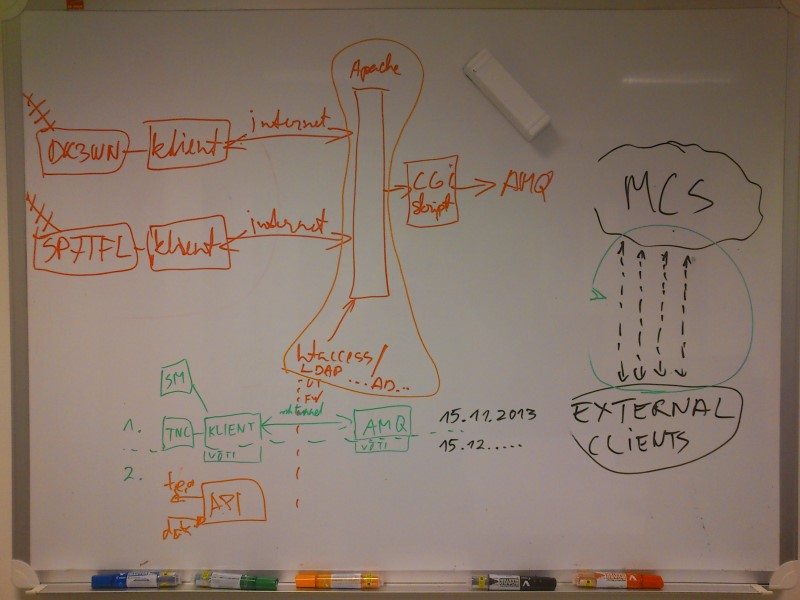 Apache
internet
DK3WN
klient
CGi
script
AMQ
internet
SP7TFL
klient
MCS
htaccess/
LDAP
...AD...
SM
internet
1.
TNC
KLIENT
VÕTI
AMQ
VÕTI
15.11.2013
15.12.....
2.
API
data
EXTERNAL
CLIENTS